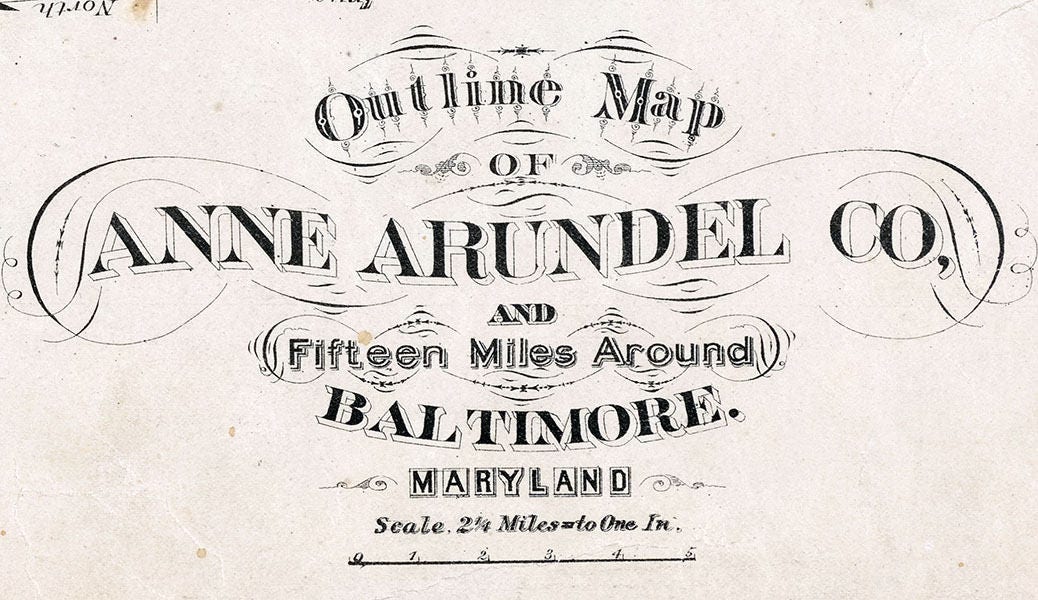 North
Outline Map
OF
ANNE ARUNDEL CO,
AND
Fifteen Miles Around
BALTIMORE.
MARYLAND
Scale. 2¼ Miles=to One In.
0 1 2 3 4 5